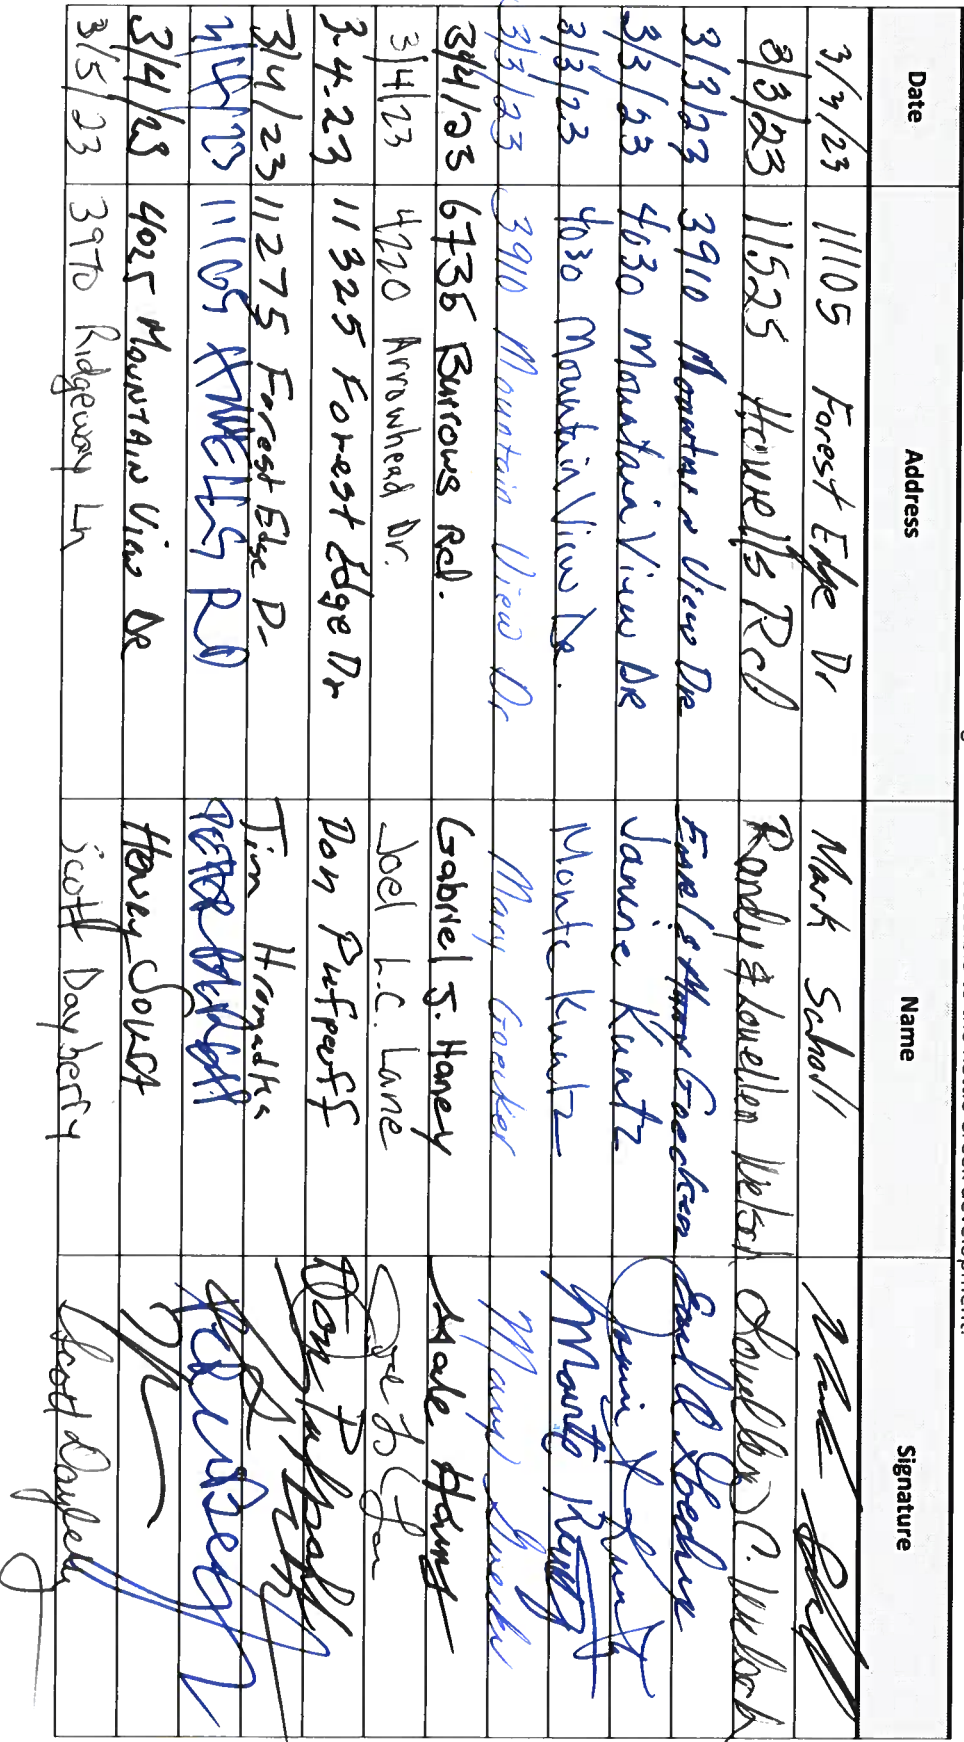 Date Address Name Signature
3/3/23 11105 Forest Edge Dr Mark Scholl
3/3/23 11525 Howells Rd Randy & Louellen Welsch Louellen C. Welsch
3/3/23 3910 Mountain View Dr Earl Goecker
3/3/23 4030 Mountain View DR Janine Kuntz Janine Kuntz
3/3/23 4030 Mountain View Dr. Monte Kuntz Monte Kuntz
3/3/23 3910 Mountain View Dr Mary Goecker Mary Goecker
3/4/23 6735 Burrows Rd. Gabriel J. Haney
3/4/23 4220 Arrowhead Dr. Joel L.C. Lane
3-4-23 11325 Forest Edge Dr Don Pufpaff Don Pufpaff
3/4/23 11275 Forest Edge Dr Tim
3/4/23 RD
3/4/23 4025 MOUNTAIN View DR
3/5/23 3970 Ridgeway Ln Scott Scott